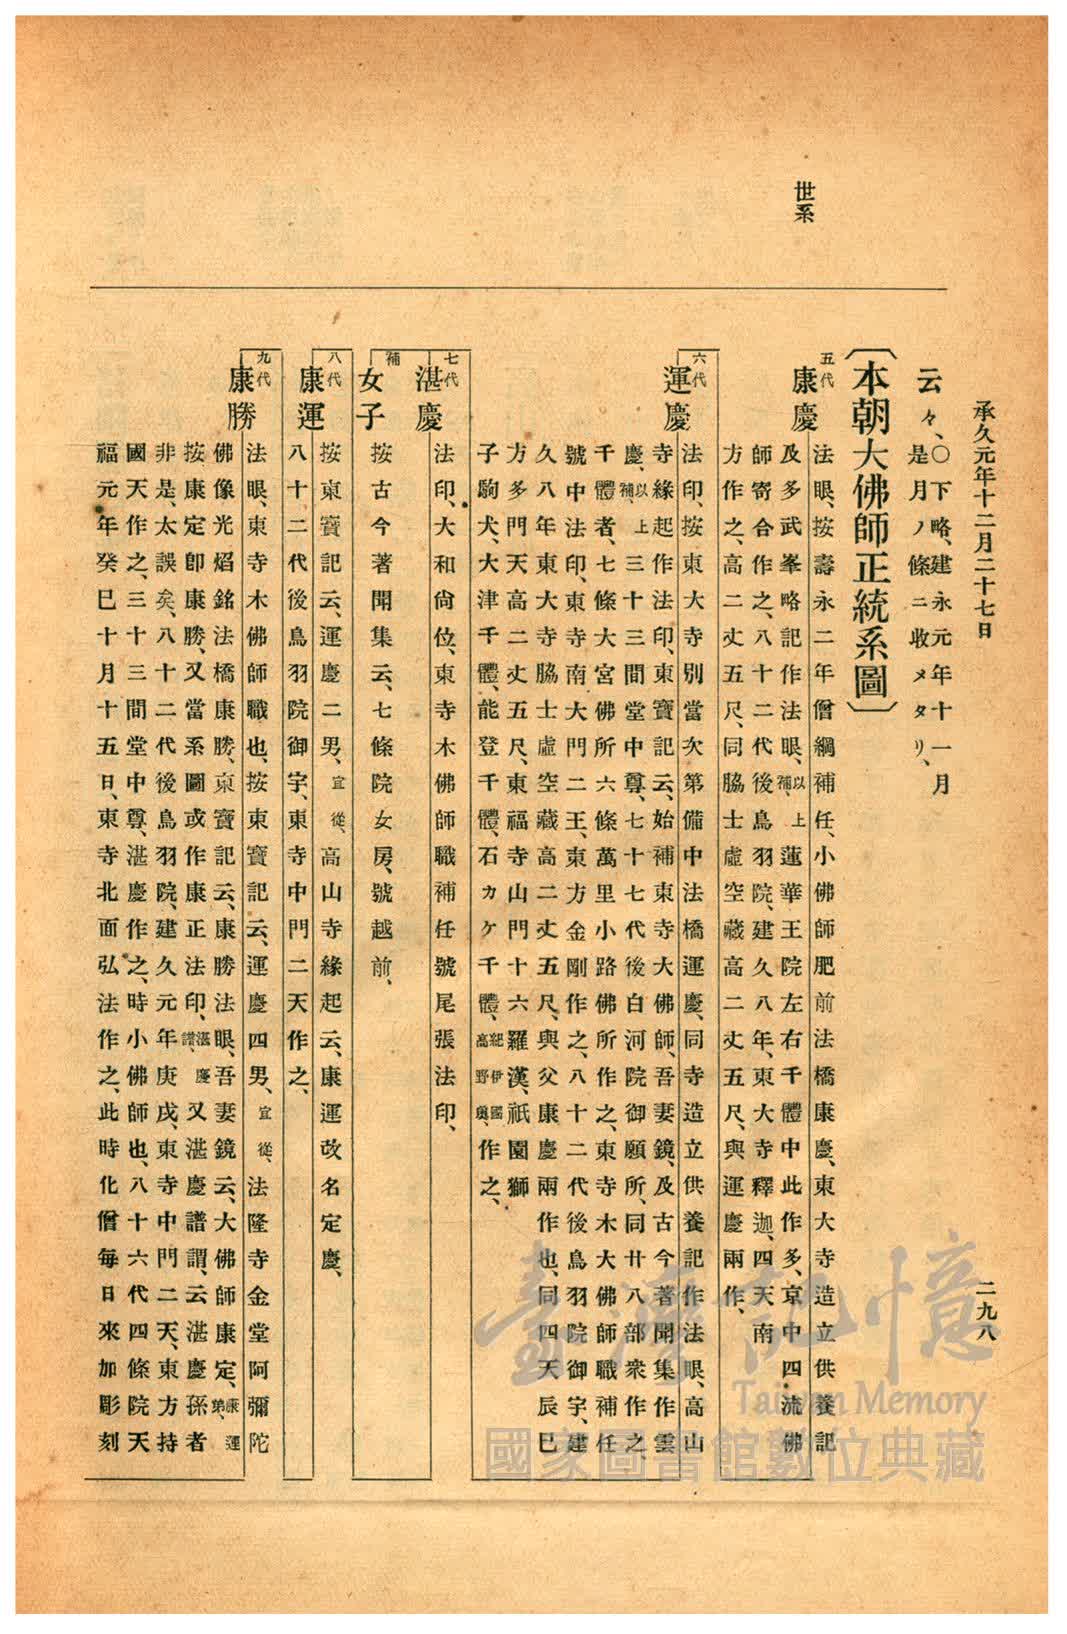 承久元年十二月二十七日
二九八
世系
云々、〇下略、建永元年十一月
是月ノ條ニ收メタリ、
〔本朝大佛師正統系圖〕
五代
康慶
法眼、按壽永二年僧綱補任、小佛師肥前法橋康慶、東大寺造立供養記
及多武峯略記作法眼、以上補、蓮華王院左右千體中此作多、京中四流佛
師寄合作之、八十二代後鳥羽院、建久八年、東大寺釋迦、四天南
方作之、高二丈五尺、同脇士虛空藏高二丈五尺、與運慶兩作、
六代
運慶
法印、按東大寺別當次第備中法橋運慶、同寺造立供養記作法眼、高山
寺緣起作法印、東寶記云、始補東寺大佛師、吾妻鏡、及古今著聞集作雲
慶、以上補、三十三間堂中尊、七十七代後白河院御願所、同廿八部衆作之、
千體者、七條大宮佛所六條萬里小路佛所作之、東寺木大佛師職補任
號中法印、東寺南大門二王、東方金剛作之、八十二代後鳥羽院御宇、建
久八年東大寺脇士虛空藏高二丈五尺、與父康慶兩作也、同四天辰巳
方多門天高二丈五尺、東福寺山門十六羅漢、祇園獅
子駒犬、大津千體、能登千體、石カケ千體、紀伊國高野奧、作之、
七代
湛慶
法印、大和尙位、東寺木佛師職補任號尾張法印、
補
女子
按古今著聞集云、七條院女房、號越前、
八代
康運
按東寶記云、運慶二男、宜從、高山寺緣起云、康運改名定慶、
八十二代後鳥羽院御宇、東寺中門二天作之、
九代
康勝
法眼、東寺木佛師職也、按東寶記云、運慶四男、宜從、法隆寺金堂阿彌陀
佛像光焰銘法橋康勝、京寶記云、康勝法眼、吾妻鏡云、大佛師康定、康運弟、
按康定卽康勝、又當系圖或作康正法印、湛慶譜、又湛慶譜謂、云湛慶孫者
非是、太誤矣、八十二代後鳥羽院、建久元年庚戌、東寺中門二天、東方持
國天作之、三十三間堂中尊、湛慶作之、時小佛師也、八十六代四條院天
福元年癸巳十月十五日、東寺北面弘法作之、此時化僧每日來加彫刻
臺灣記憶
Taiwan Memory
國家圖書館數位典藏